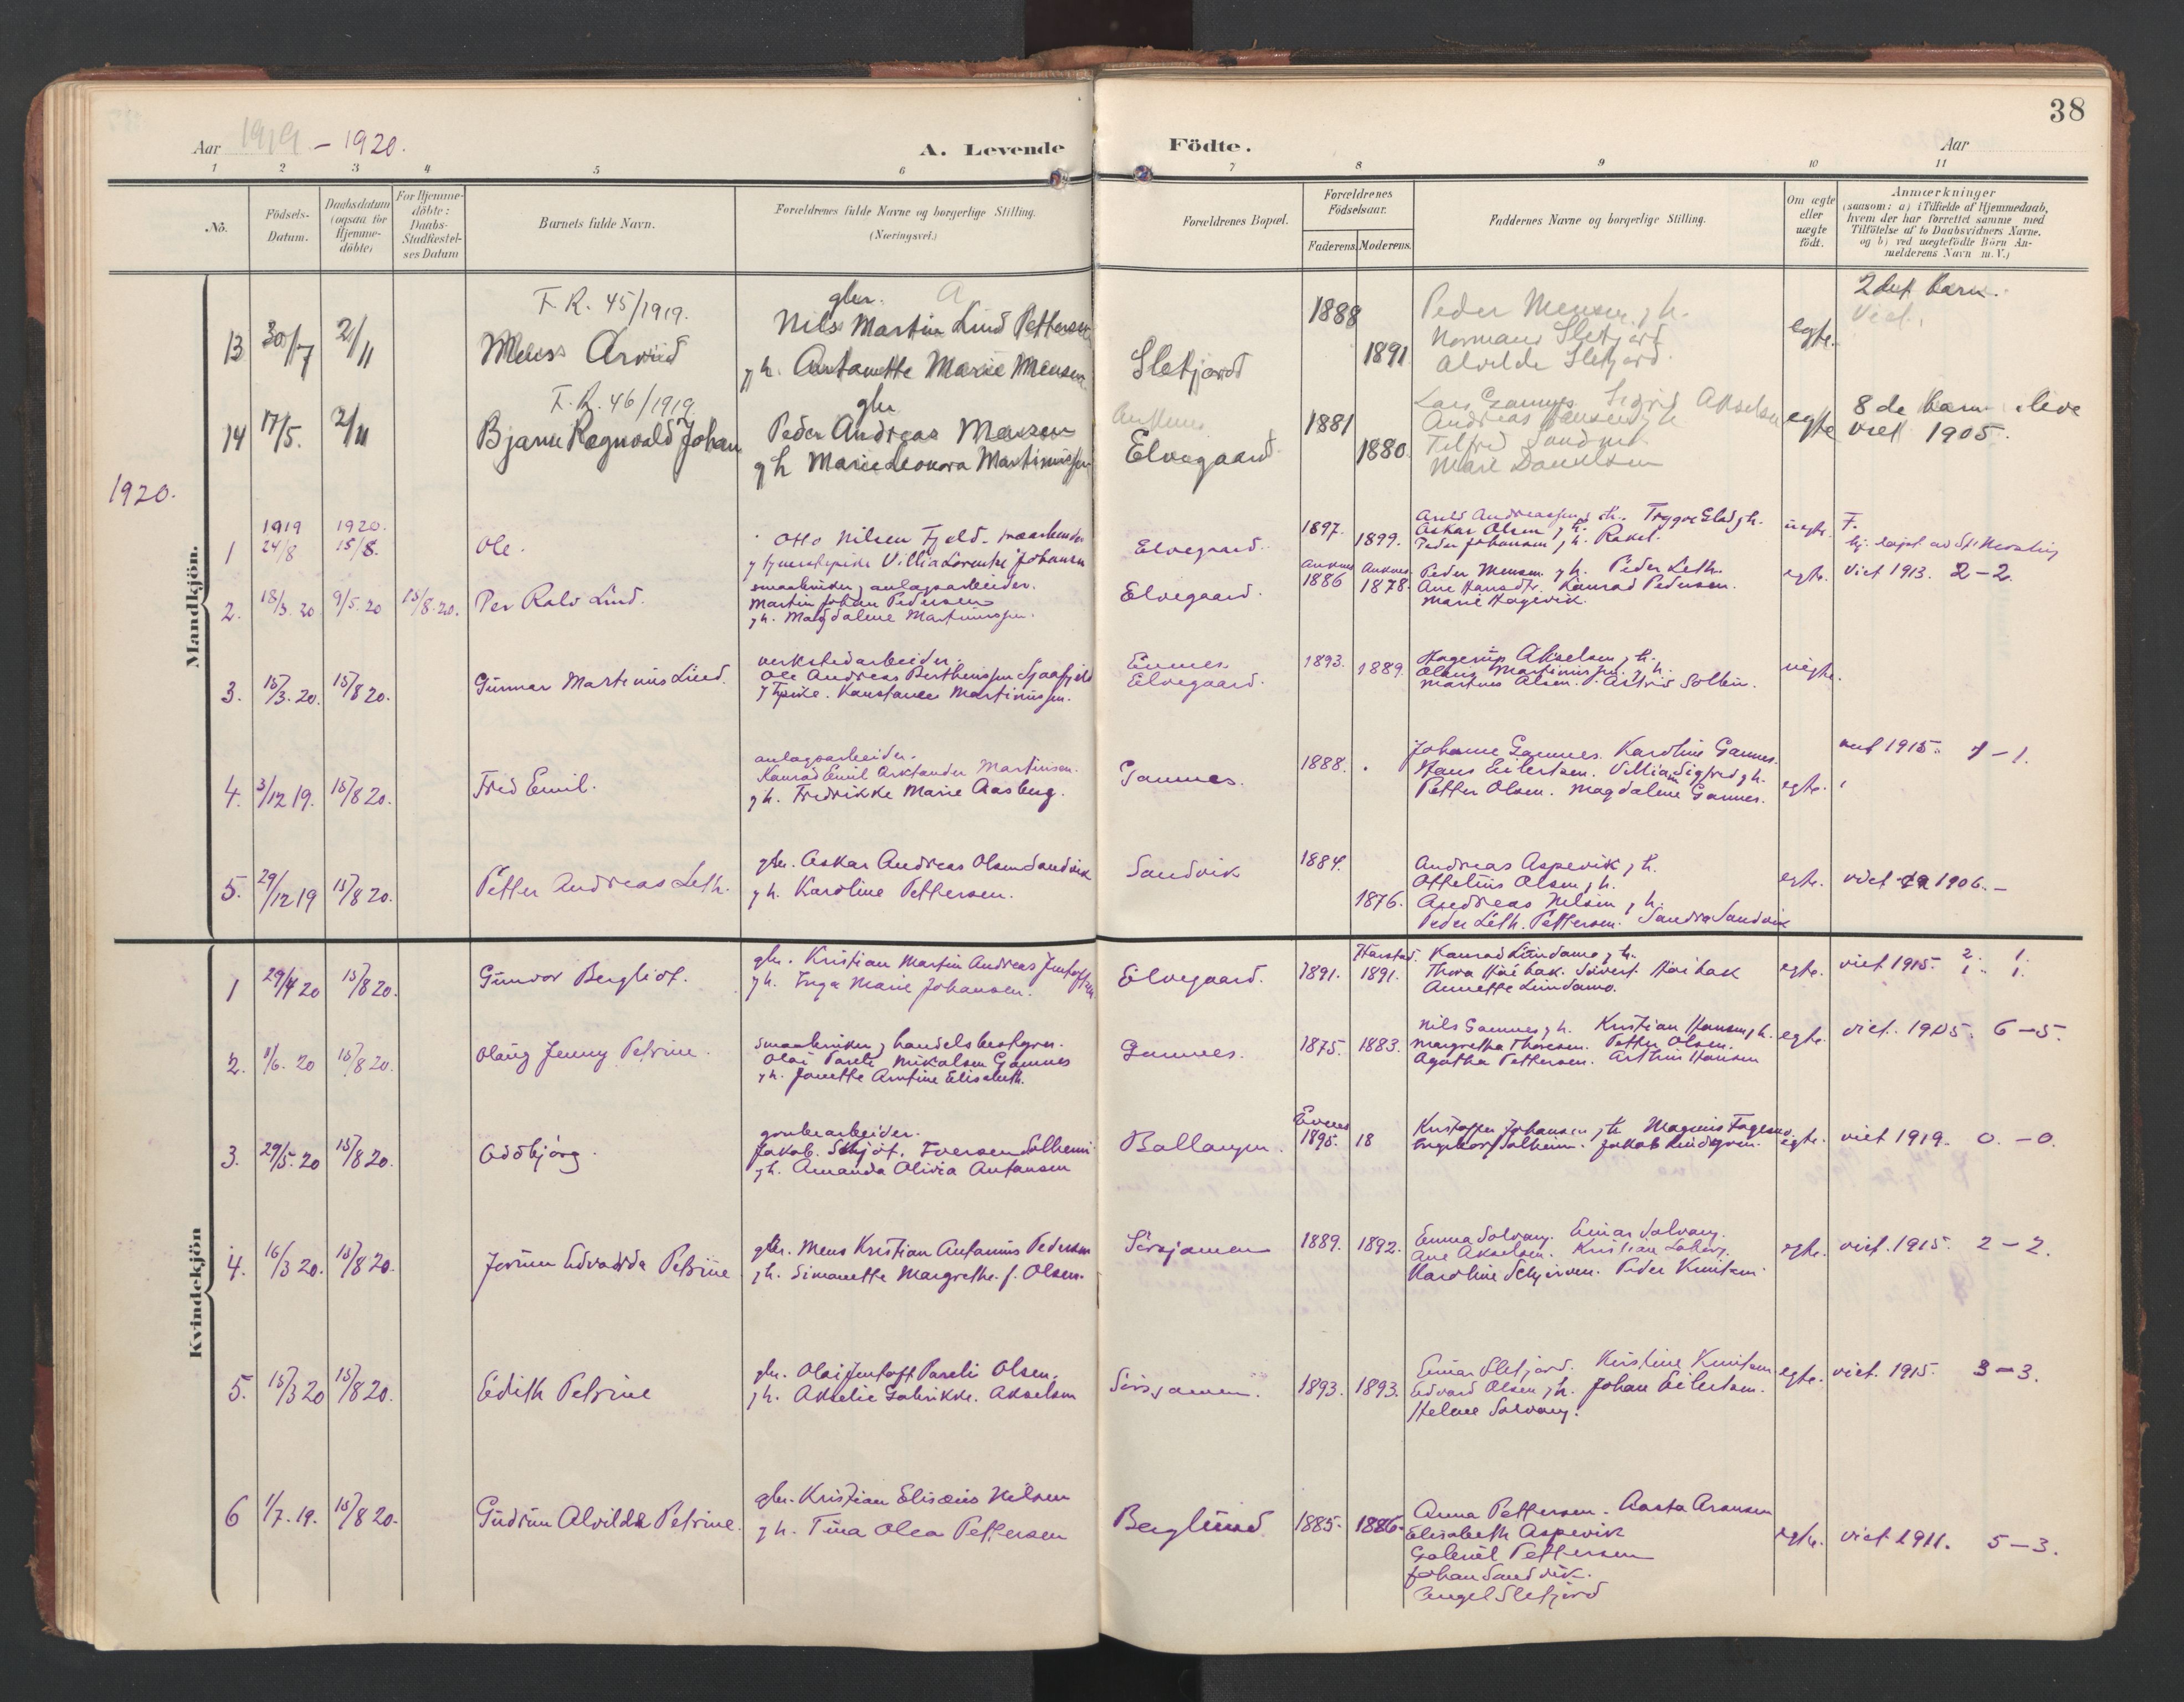 38
Aar 1919 - 1920.
A. Levende Födte.
Aar
1 2 3 4 5 6 7 8 9 10 11
No.
Födsels-Datum.
Daabsdatum (ogsaa for Hjemme-döbte)
For Hjemme-döbte: Daabs-Stadfæstel-ses Datum
Barnets fulde Navn.
Forældrenes fulde Navne og borgerlige Stilling.
(Næringsvei.)
Forældrenes Bopæl.
Forældrenes Födselsaar.
Faderens. Moderens.
Faddernes Navne og borgerlige Stilling.
Om ægte eller uægte födt.
Anmærkninger
(saasom: a) i Tilfælde af Hjemmedaab,
hvem der har forrettet samme med
Tilföielse af to Daabsvidners Navne,
og b) ved uægtefödte Börn An-
melderens Navn m. V.)
Mandkjön.
13 30/7 2/11
F.R. 45/1919.
Mens Arvid
gbr.
Nils Martin Lind Pettersen
og h. Antonette Marie Mensen
Sletjord
1888 1891
Peder Mensen, h.
Normann Sletjord
Alvilde Sletjord.
egte.
2det barn.
Viet.
14 17/5. 2/11
F.R. 46/1919
Bjarne Ragnvald Johan
gbr
Peder Andreas Mensen
g h Marie Leonora Martinussen
Elvegaard
1881 1880.
Lars Gamnes Sigrid Akselsen
Andreas Hansen h
Marie Danielsen
egte
8 de barn
viet 1905.
1920.
1 1919 24/8 1920. 15/8.
Ole.
Otto Nilsen Fjeld.
Villia Lorentse Johansen
Elvegaard.
1897. 1899.
Arels Andreassen h. Trygve Elsd h.
Oskar Olsen h.
Peder Johansen, h. Rakel.
uegte.
F.
2. 18/3. 20 9/5. 20 15/8. 20.
Per Rolv Lind.
smaabruker, anlægsarbeider.
Martin Johan Pedersen
g h. Magdalene Martinussen.
Elvegaard.
Ankenes 1886 Ankenes. 1878.
Peder Mensen g h. Peder Leth.
Ane Hansdtr. Konrad Pedersen.
Marie Hagevik.
egte.
Viet 1913. 2-2.
3. 15/3. 20. 15/8 20.
Gunnar Martinus Lind.
verkstedarbeider.
Ole Andreas Berthinssen Sjaafjeld
g pike. Konstance Martinussen.
Evenes
Elvegaard.
1893. 1889.
Hagerup Akselsen, h.
Olaug Martinussen, h.
Martinus Olsen. Astrid Solbu.
uegte.
4. 3/12 19. 15/8 20.
Fred Emil.
anlægsarbeider.
Konrad Emil Arktander Martinsen.
g h. Fredrikke Marie Aasberg.
Gamnes.
1888.
Johanne Gamnes. Karoline Gamnes.
Hans Eilertsen. Villiam Sigfred g h.
Petter Olsen. Magdalene Gamnes.
egte.
viet 1915. 1-1.
5. 29/12 19 15/8 20.
Petter Andreas Leth.
gbr. Oskar Andreas Olsen Sandvik
g h. Karoline Pettersen.
Sandvik
1884. 1876.
Andreas Aspevik, h.
Ottelius Olsen, h.
Andreas Nilsen, h.
Peder Leth. Pettersen. Sandra Sandvik
egte.
viet 1906.-
Kvindekjön
1 29/4 20 15/8 20.
Gunvor Bergliot.
gbr. Kristian Martin Andreas Jentoftsen
g h. Inga Marie Johansen.
Elvegaard.
1891. Harstad. 1891.
Konrad Lundamo, h.
Thora Höibak. Sivert Höibak
Annette Lundamo.
egte.
viet 1915. 2. 1.
1. 1.
2. 1/6. 20 15/8 20.
Olaug Jenny Petrine.
smaabruker, handelsbestyrer.
Olai Pareli Mikalsen Gamnes
g h. Janette Arntine Elisabeth.
Gamnes.
1875. 1883.
Nils Gamnes g h. Kristian Hansen, h.
Margretha Thoresen. Petter Olsen.
Agatha Pettersen. Arthur Hansen
egte.
viet. 1905. 6-5.
3. 29/5. 20 15/8 20.
Oddbjörg.
grubearbeider.
Jakob. Skjöt. Iversen Solheim
g h. Amanda Olivia Antonsen
Ballangen.
Evenes 1895. 18
Kristoffer Johansen, h. Magnus Fagernes
Ingeborg Solheim. Jakob Lindgren.
egte.
viet 1919. 0. -0.
4. 16/3 20. 15/8 20.
Jorunn Edvardda Petrine
gbr. Mens Kristian Antonius Pedersen
g h. Simonette Margrethe. f. Olsen.
Sörsjonen
1889. 1892.
Emma Solvang. Einar Solvang.
Ane Akselsen. Kristian Loberg.
Karoline Schjerven. Peder Knutsen
egte.
viet. 1915. 2-2.
5. 15/3 20 15/8 20.
Edith Petrine
gbr. Olai Jentoft Pareli Olsen.
g h. Akselie Gabrikke. Akselsen
Sörsjonen.
1893. 1893.
Einar Sletjord. Kristine Knutsen
Edvard Olsen, h. Johan Eilertsen.
Helene Solvang.
egte.
viet. 1915. 3-3.
6 1/7. 19. 15/8 20.
Gudrun Alvilda Petrine.
gbr. Kristian Elisæus Nilsen
g h. Tina Olea Pettersen
Berglund
1885. 1886.
Anna Pettersen. Aasta Aronsen
Elisabeth Aspevik
Gabriel Pettersen
Johan Sandvik.
Engel Sletjord
egte.
viet 1911. 5-3.